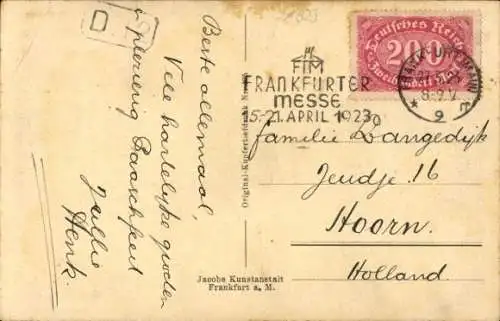 Beste allemaal,
Vele hartelijke groeten
n plezierig Paaschfeest
Jullie
Henk.
D
Original-Kupfertiefdruck
Jacobs Kunstanstalt
Frankfurt a. M.
FIM
FRANKFURTER
MESSE
15.-21. APRIL 1923
Deutsches Reich
200
FRANKFURT (MAIN)
8-9 V.
* 9
Familie Langedijk
Jeudje 16
Hoorn.
Holland.